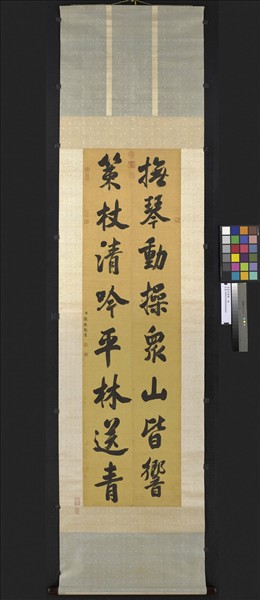 撫琴動操眾山皆響
策杖清吟平林送青